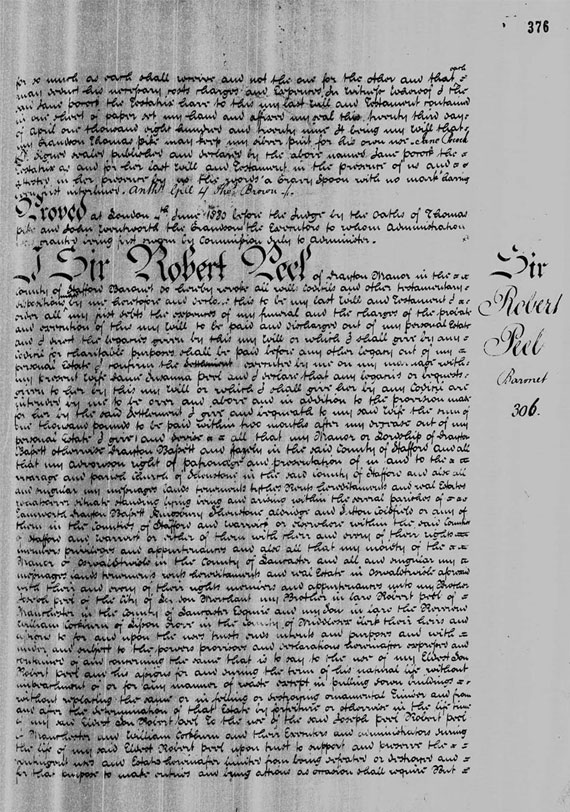 376
for so much as each shall receive and not the one for the other and that each
may deduct his necessary costs charges and expences In witness whereof I the
said Jane Pocock the Testatrix have to this my last will and Testament contained
in one sheet of paper set my hand and affixed my seal this twenty third day
of April one thousand eight hundred and twenty nine It being my will that
my Grandson Thomas Pike may keep my silver pint for his own use Jane Pocock
signed sealed published and declared by the above named Jane Pocock the
Testatrix as and for her last will and Testament in the presence of us and
in her presence the words a Gravy Spoon with no mark having
first interlined
Proved at London 4th June 1830 before the Judge by the Oaths of Thomas
Pike and John Wentworth the Grandson the Executors to whom Administration
was granted being first sworn by Commission duly to Administer.
I Sir Robert Peel of Drayton Manor in the
County of Stafford Baronet do hereby revoke all wills Codicils and other testamentary
dispositions by me heretofore and declare this to be my last will and Testament I
order all my just debts the expences of my funeral and the charges of the probate
and execution of this my will to be paid and discharged out of my personal Estate
and I direct the legacies given by this my will or which I shall give by any
Codicil for charitable purposes shall be paid before any other legacy out of my
personal Estate I confirm the settlement executed by me on my marriage with
my present wife Dame Susanna Peel and I declare that any legacies or bequests
given to her by this my will or which I shall give her by any Codicil are
intended by me to be over and above and in addition to the provision made
for her by the said settlement I give and bequeath to my said wife the sum of
one thousand pounds to be paid within two months after my decease out of my
personal Estate I give and devise all that my Manor or Lordship of Drayton
Bassett otherwise Drayton Bassett and in the said County of Stafford and all
that my advowson right of patronage and presentation of in and to the
vicarage and parish church of Shenstone in the said County of Stafford and also all
and singular my messuages lands tenements tithes Rents hereditaments and real Estates
whatsoever situate standing lying and arising within the several parishes of
Tamworth Drayton Bassett Shenstone Aldridge and Sutton Coldfield or any of
them in the Counties of Stafford and Warwick or elsewhere within the said Counties
of Stafford and Warwick or either of them with their and every of their rights
members privileges and appurtenances and also all that my moiety of the
Manor of Oswaldtwistle in the County of Lancaster and all and singular my
messuages lands tenements rents hereditaments and real Estate in Oswaldtwistle aforesaid
with their and every of their rights members and appurtenances unto my Brother
Joseph Peel of the City of London Merchant my Brother in law Robert Peel of
Manchester in the County of Lancaster Esquire and my Son in law the Reverend
William Cockburn of Lisson Grove in the County of Middlesex Clerk their heirs and
assigns to for and upon the uses trusts ends intents and purposes and with
under and subject to the powers provisoes and declarations hereinafter expressed and
contained of and concerning the same that is to say to the use of my Eldest Son
Robert Peel and his assigns for and during the term of his natural life without
impeachment of or for any manner of waste except in pulling down buildings
without replacing the same or in felling or destroying ornamental timber and from
and after the determination of that Estate by forfeiture or otherwise in the life time
of my said Eldest Son Robert Peel To the use of the said Joseph Peel Robert Peel
of Manchester and William Cockburn and their Executors and administrators during
the life of my said Eldest Robert Peel upon trust to support and preserve the
contingent uses and Estates hereinafter limited from being defeated or destroyed and
for that purpose to make entries and bring actions as occasion shall require But
Sir
Robert
Peel
Baronet
306.